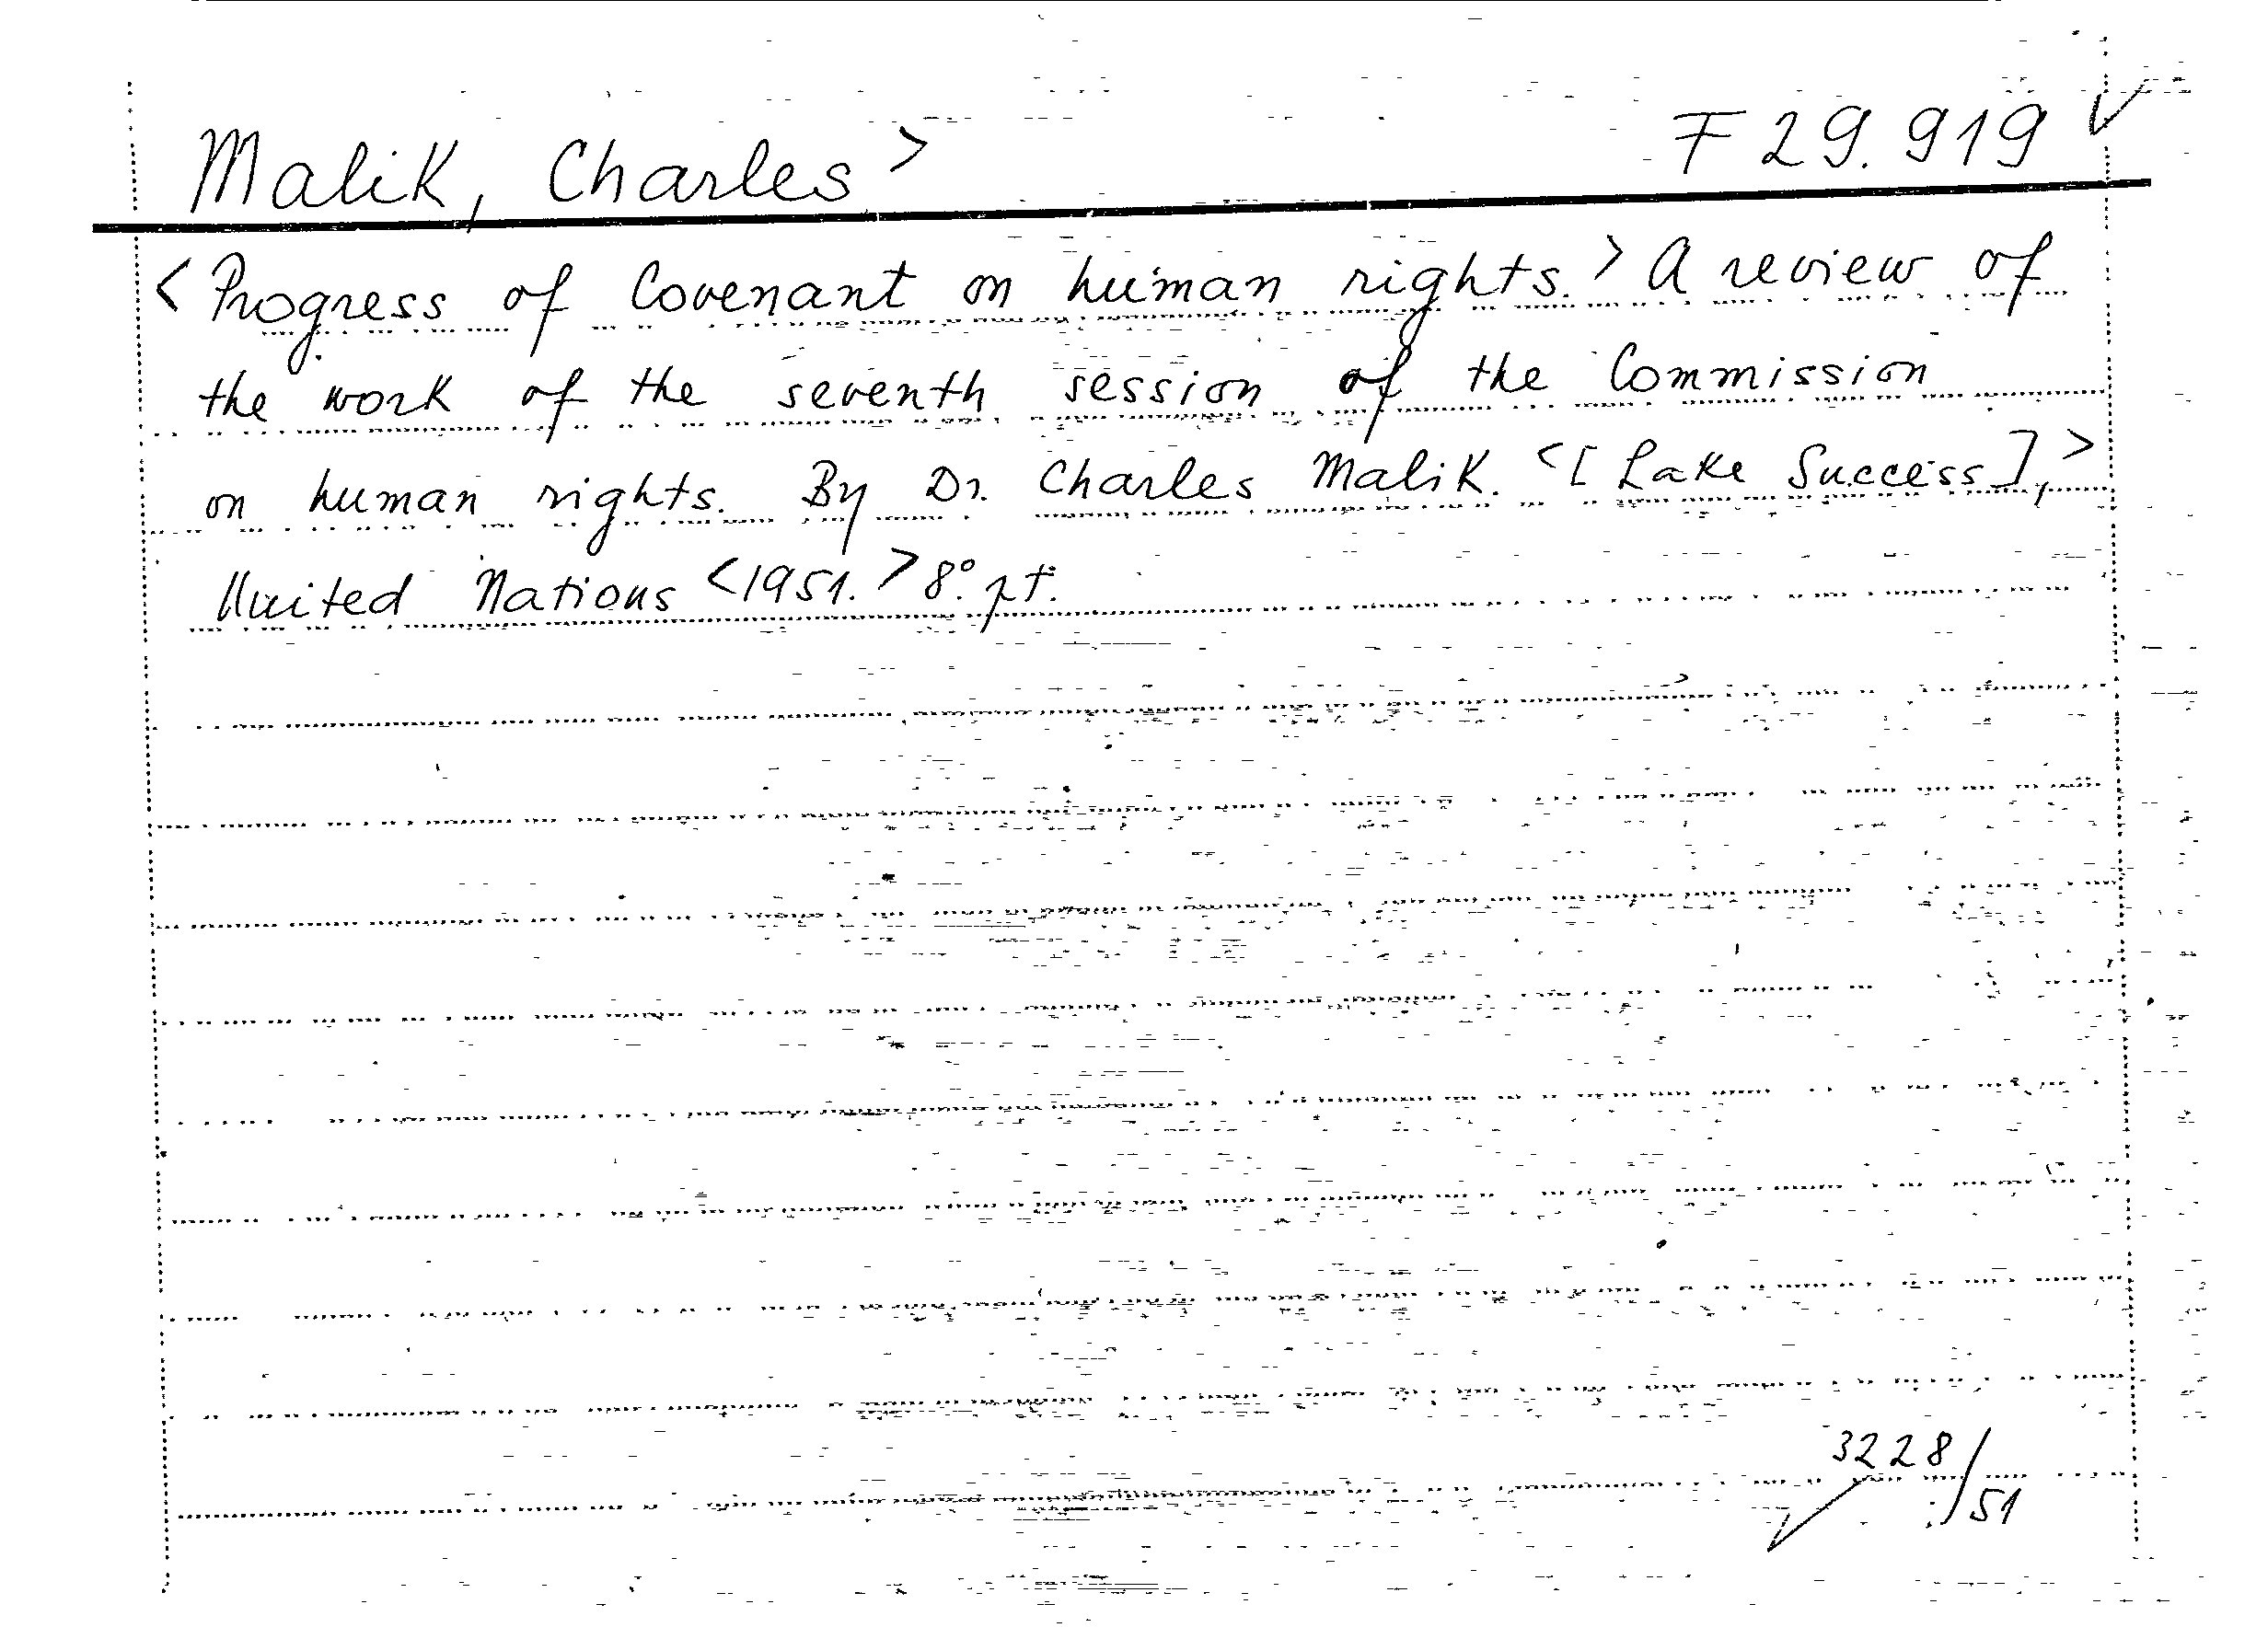 Malik, Charles> F 29.919
<Progress of Covenant on human rights.> A review of
the work of the seventh session of the Commission
on human rights. By Dr. Charles Malik. <[Lake Success],>
United Nations <1951.> 8° pt.
3228/51